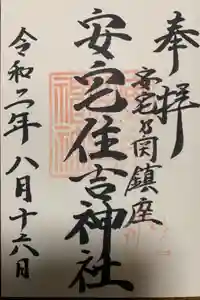 奉拝
安宅の関鎮座
安宅住吉神社
令和二年八月十六日